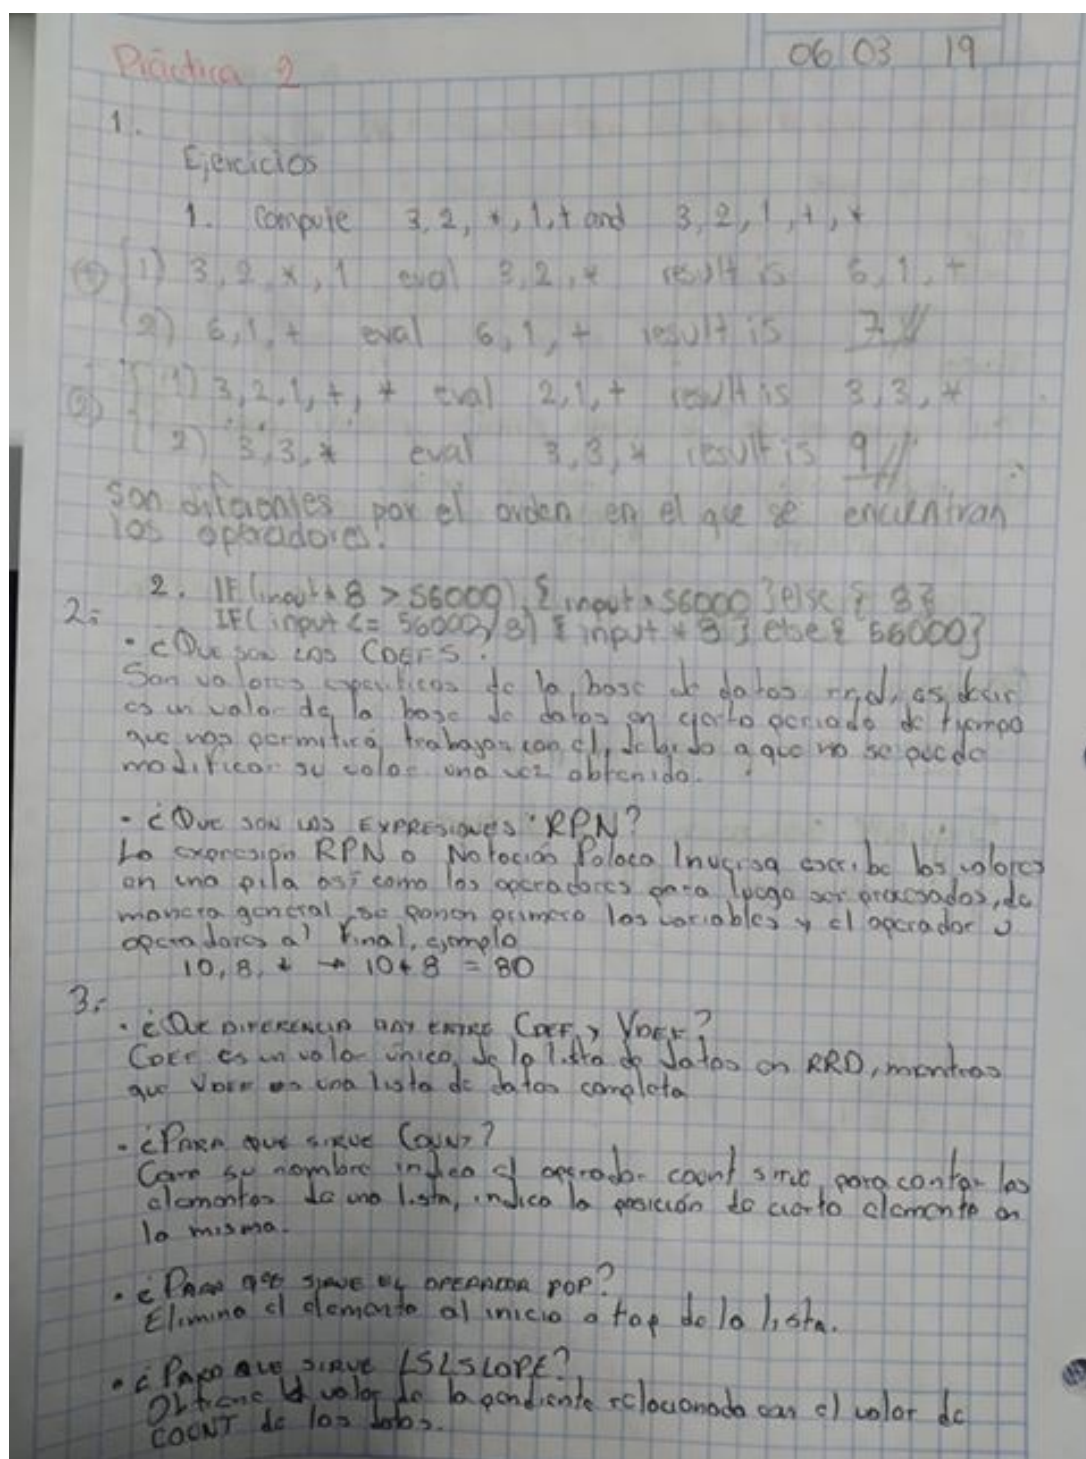 06 03 19
Práctica 2
1.
Ejercicios
1. Compute 3,2,*,1,+ and 3,2,1,+,*
(1) 1) 3,2,*,1 eval 3,2,* result is 6,1,+
2) 6,1,+ eval 6,1,+ result is 7//
(2) 1) 3,2,1,+,* eval 2,1,+ result is 3,3,*
2) 3,3,* eval 3,3,* result is 9//
Son diferentes por el orden en el que se encuentran
los operadores.
2. IF(input * 8 > 56000) { input * 56000 } else { 8 }
2.- IF( input <= 56000/8) { input * 8 } else { 56000}
· ¿Que son los CDEFS?
Son valores especificos de la base de datos rrd, es decir
es un valor de la base de datos en cierto periodo de tiempo
que nos permitirá trabajar con el, debido a que no se puede
modificar su valor una vez obtenido.
· ¿Que son las expresiones RPN?
La expresion RPN o Notación Polaca Inversa escribe los valores
en una pila así como los operadores para luego ser procesados, de
manera general, se ponen primero las variables y el operador u
operadores al final, ejemplo
10, 8, * → 10 * 8 = 80
3.-
· ¿Que diferencia hay entre CDEF y VDEF?
CDEF es un valor único de la lista de datos en RRD, mientras
que VDEF es una lista de datos completa
· ¿Para que sirve Count?
Como su nombre indica el operador count sirve para contar los
elementos de una lista, indica la posición de cierto elemento en
la misma.
· ¿Para que sirve el operador POP?
Elimina el elemento al inicio o top de la lista.
· ¿Para que sirve LSLSLOPE?
Obtiene el valor de la pendiente relacionada con el valor de
COUNT de los datos.